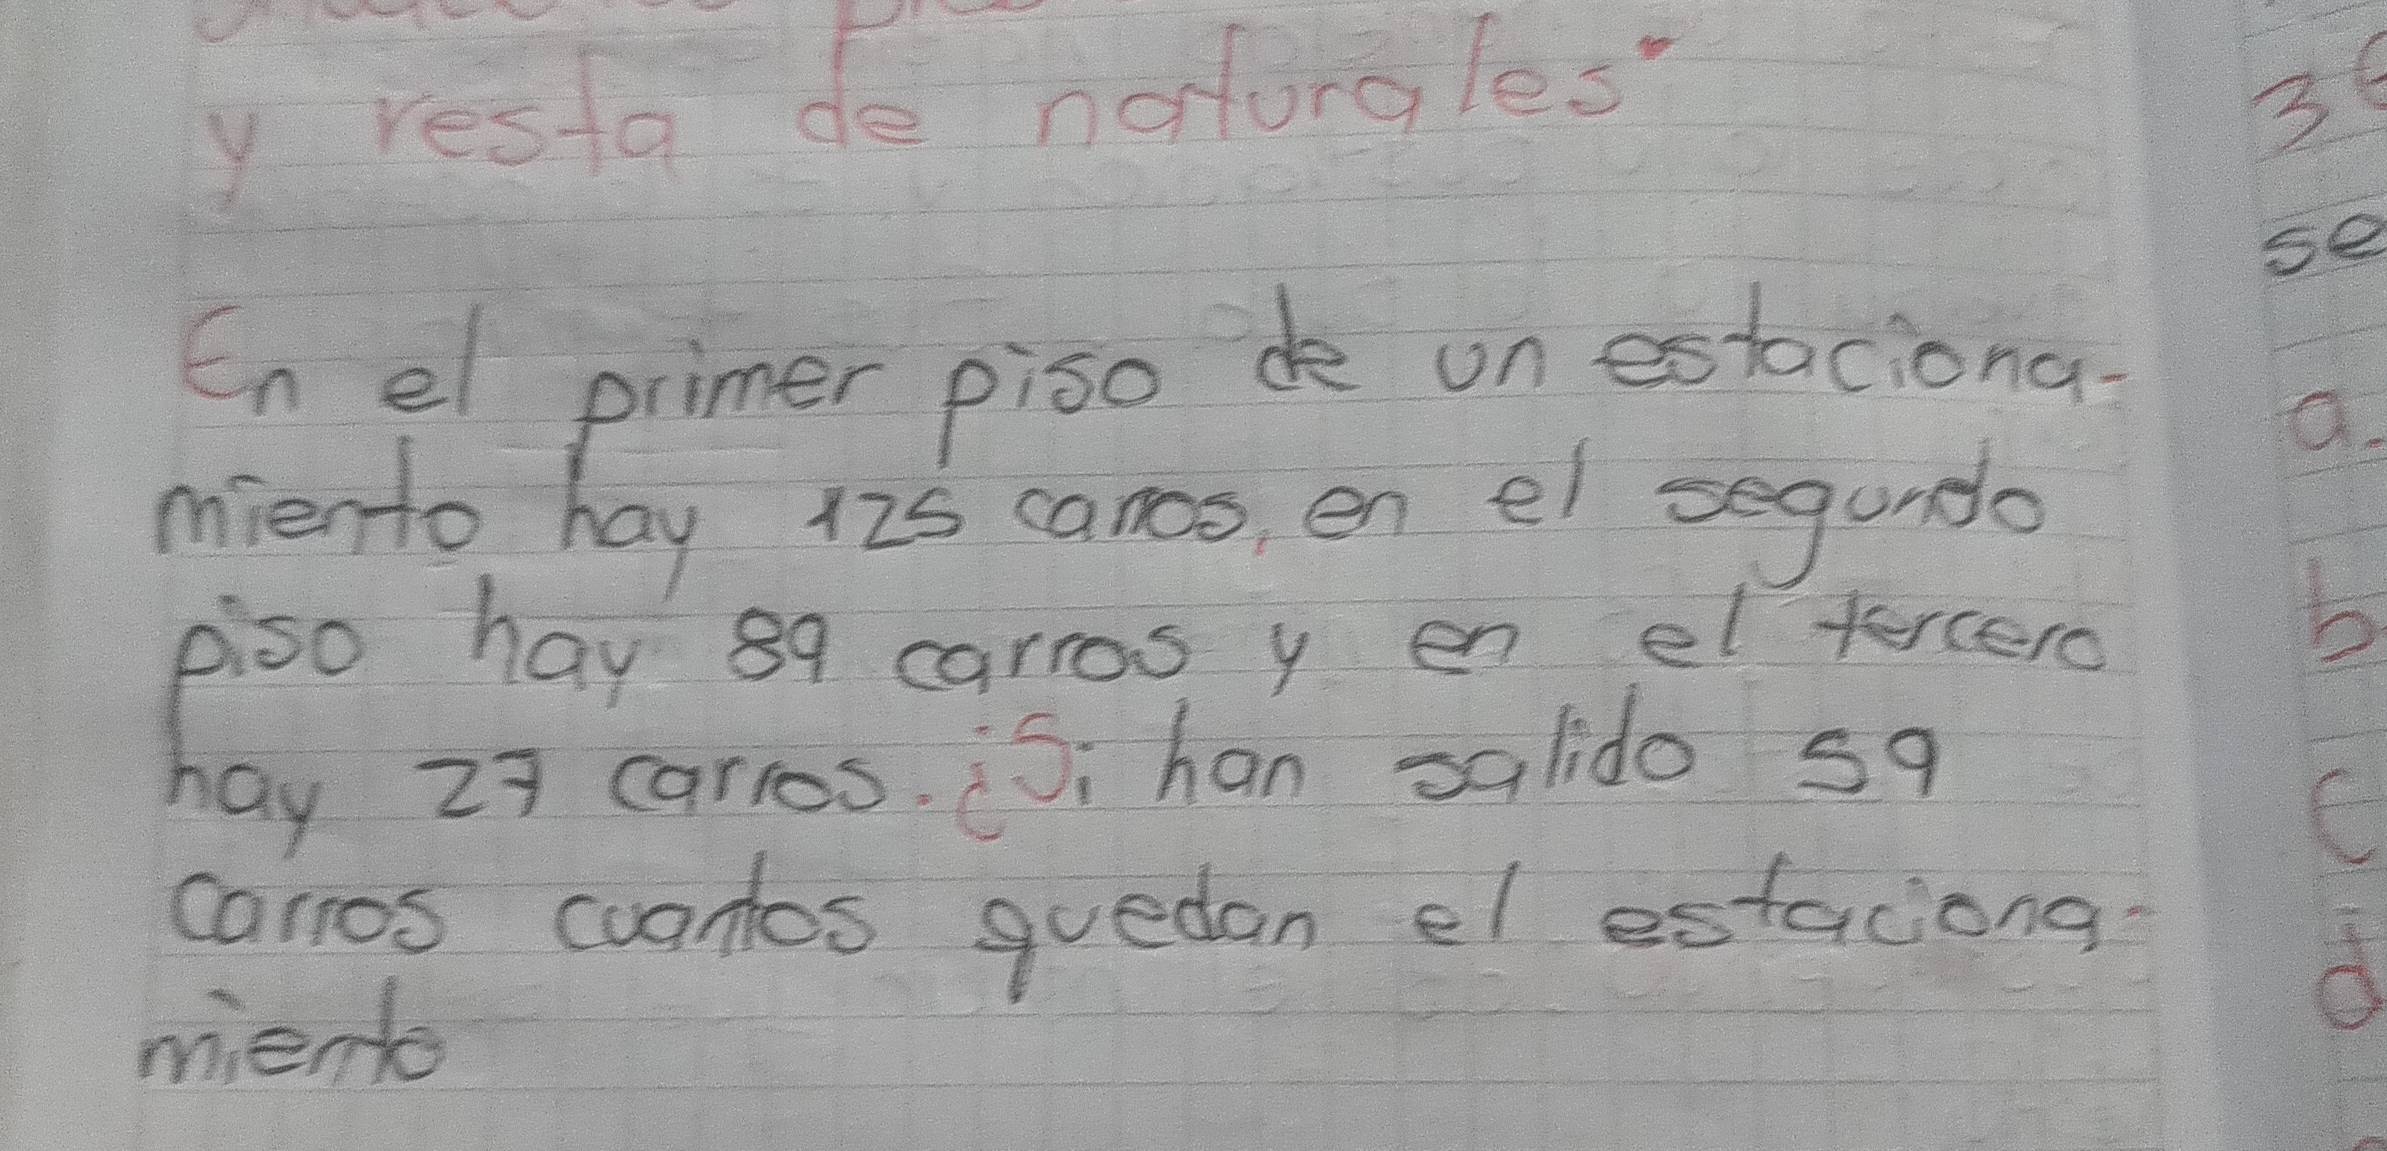 y resta de naturales"
En el primer piso de un estaciona-
miento hay 125 carros, en el segundo
piso hay 89 carros y en el tercero
hay 27 carros. ¿Si han salido 59
carros cuantos quedan el estaciona-
miento
se
a.
b
c
d